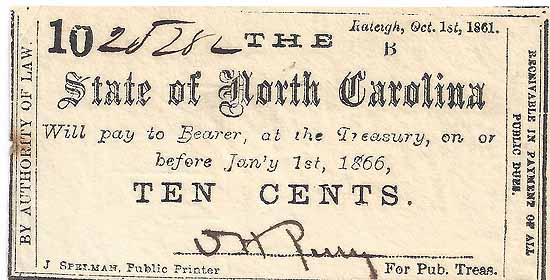 10 THE
Raleigh, Oct. 1st, 1861.
B
State of North Carolina
Will pay to Bearer, at the Treasury, on or
before Jan'y 1st, 1866,
TEN CENTS.
J SPELMAN, Public Printer
For Pub. Treas.
BY AUTHORITY OF LAW.
RECEIVABLE IN PAYMENT OF ALL
PUBLIC DUES.